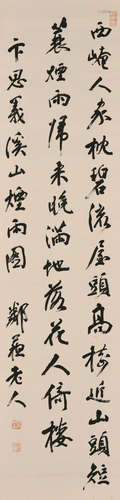 西崦人家枕碧流屋頭高樹近山頭短
蓑煙雨歸來晚滿地落花人倚樓
卞思義溪山煙雨圖 鄰蘇老人